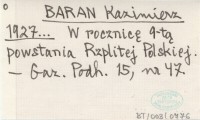 BARAN Kazimierz
1927... W rocznicę 9-tą
powstania Rzplitej Polskiej.
– Gaz. Podh. 15, nr 47
87/003/0476